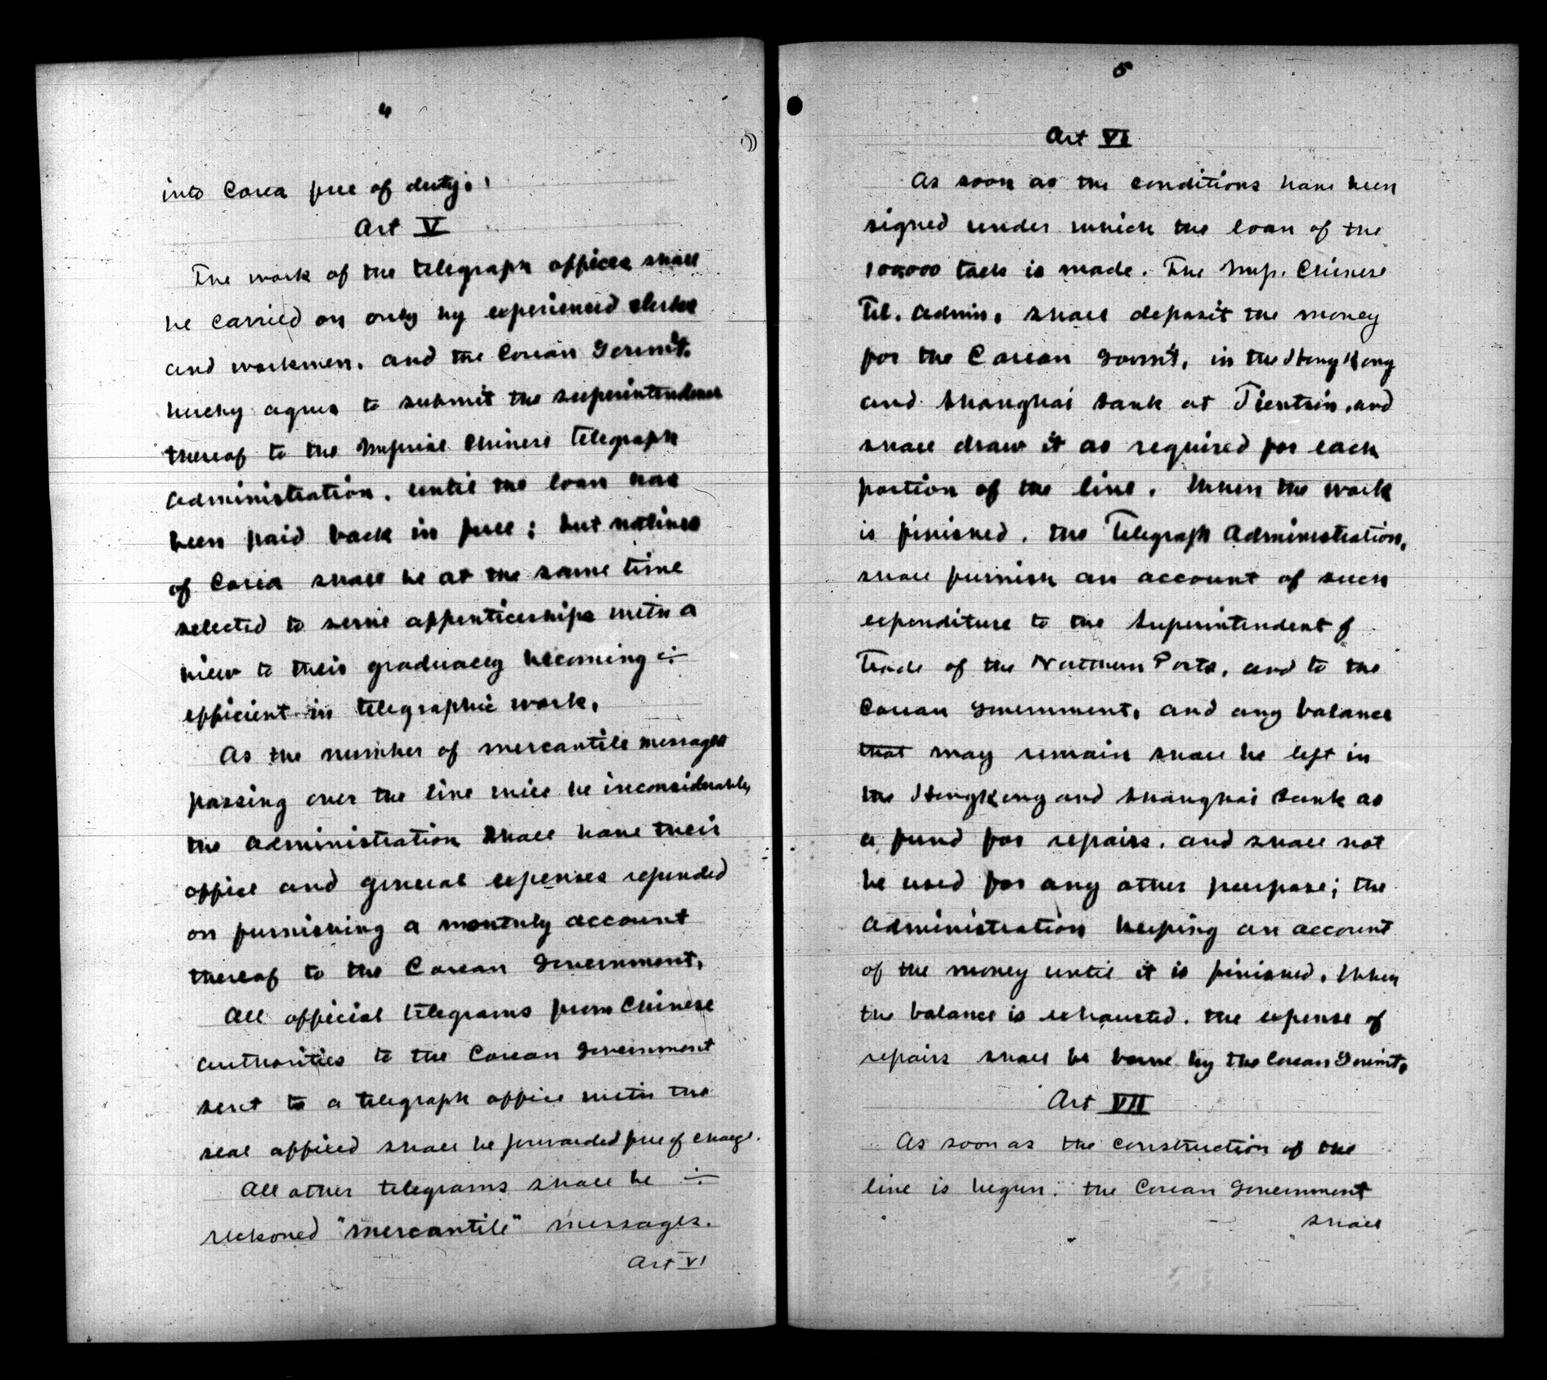 4
into Corea free of duty.
Art V
The work of the telegraph offices shall
be carried on only by experienced clerks
and workmen, and the Corean Governmt.
hereby agrees to submit the superintendence
thereof to the Imperial Chinese Telegraph
Administration, until the loan has
been paid back in full; but natives
of Corea shall be at the same time
selected to serve apprenticeships with a
view to their gradually becoming
efficient in telegraphic work.
As the number of mercantile messages
passing over the line will be inconsiderable,
the Administration shall have their
office and general expenses refunded
on furnishing a monthly account
thereof to the Corean Government.
All official telegrams from Chinese
authorities to the Corean Government
sent to a telegraph office with the
seal affixed shall be forwarded free of charge.
All other telegrams shall be
reckoned "mercantile" messages.
Art VI
5
Art VI
As soon as the conditions have been
signed under which the loan of the
100,000 taels is made. The Imp. Chinese
Tel. Admin. shall deposit the money
for the Corean Govm't. in the Hong Kong
and Shanghai Bank at Tientsin, and
shall draw it as required for each
portion of the line. When the work
is finished, the Telegraph Administration,
shall furnish an account of such
expenditure to the Superintendent of
Trade of the Northern Ports, and to the
Corean Government, and any balance
that may remain shall be left in
the HongKong and Shanghai Bank as
a fund for repairs, and shall not
be used for any other purpose; the
Administration keeping an account
of the money until it is finished. When
the balance is exhausted, the expense of
repairs shall be borne by the Corean Governmt.
Art VII
As soon as the construction of the
line is begun, the Corean Government
shall